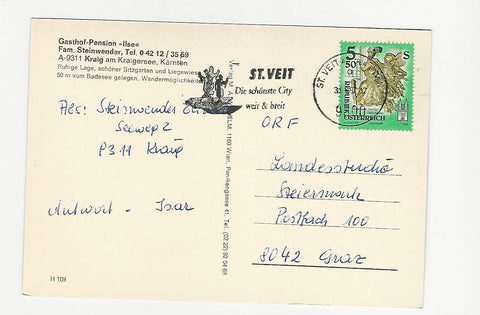 Gasthof-Pension »Ilse«
Fam. Steinwender, Tel. 0 42 12 / 35 69
A-9311 Kraig am Kraigersee, Kärnten
Ruhige Lage, schöner Sitzgarten und Liegewiese
50 m vom Badesee gelegen, Wandermöglichkeiten
Abs: Steinwender
Seeweg 2
9311 Kraig
Antwort - Isar
H 109
1160 Wien, Panikengasse 41, Tel. (02 22) 92 04 68
ST. VEIT
Die schönste City
weit & breit
ST. VEIT
5
50
S
REPUBLIK
ÖSTERREICH
ORF
Landesstudio
Steiermark
Postfach 100
8042 Graz